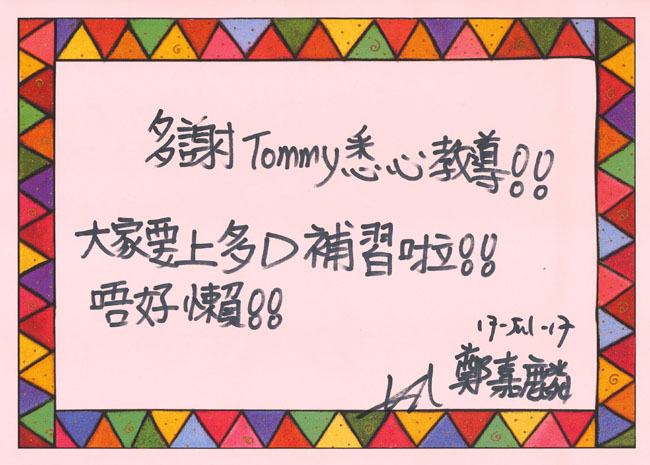 多謝Tommy悉心教導!!
大家要上多D補習啦!!
唔好懶!!
17-Jul-17
鄭嘉麟